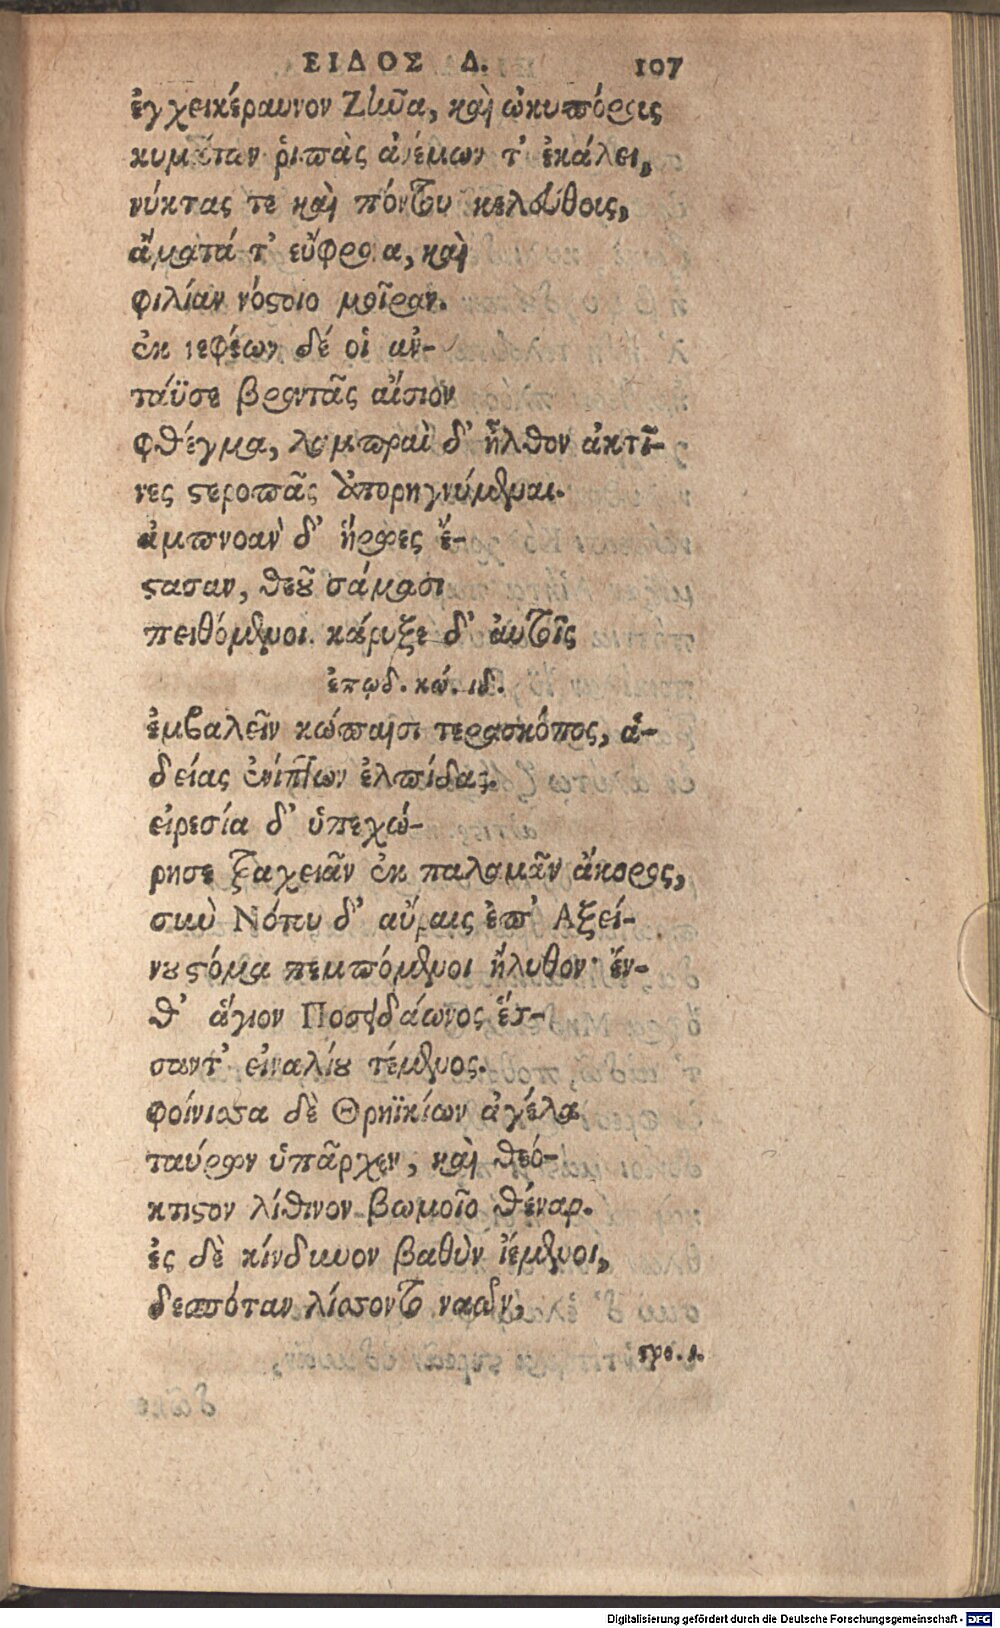 ΕΙΔΟΣ Δ. 107
ἐγχεικέραυνον Ζῆνα, καὶ ὠκυπόρσις
κυμάτων ῥιπὰς ἀνέμων τ' ἐκάλει,
νύκτας τε καὶ πόντου κελεύθοις,
ἄματά τ' εὔφρονα, καὶ
φιλίαν νόστοιο μοῖραν.
ἐκ νεφέων δέ οἱ ἀν-
τάϋσε βροντᾶς αἴσιον
φθέγμα, λαμπραὶ δ' ἦλθον ἀκτῖ-
νες στεροπᾶς ἀπορηγνύμεναι.
ἀμπνοὰν δ' ἥρωες ἔ-
στασαν, θεοῦ σάμασι
πειθόμενοι. κάρυξε δ' αὐτοῖς
ἐπῳδ. κώ. ιδ.
ἐμβαλεῖν κώπαισι τερασκόπος, ἁ-
δείας ἐνίπτων ἐλπίδας.
εἰρεσία δ' ὑπεχώ-
ρησε ταχειᾶν ἐκ παλαμᾶν ἄκορος,
σὺν Νότου δ' αὔραις ἐπ' Ἀξεί-
νου στόμα πεμπόμενοι ἤλυθον· ἔν-
θ' ἅγιον Ποσειδάωνος ἕσ-
σαντ' εἰναλίου τέμενος.
φοίνισσα δὲ Θρηϊκίων ἀγέλα
ταύρων ὑπᾶρχεν, καὶ θεό-
κτιστον λίθινον βωμοῖο θέναρ.
ἐς δὲ κίνδυνον βαθὺν ἱέμενοι,
δεσπόταν λίσσοντο ναῶν,
στρο. ι.
Digitalisierung gefördert durch die Deutsche Forschungsgemeinschaft - DFG